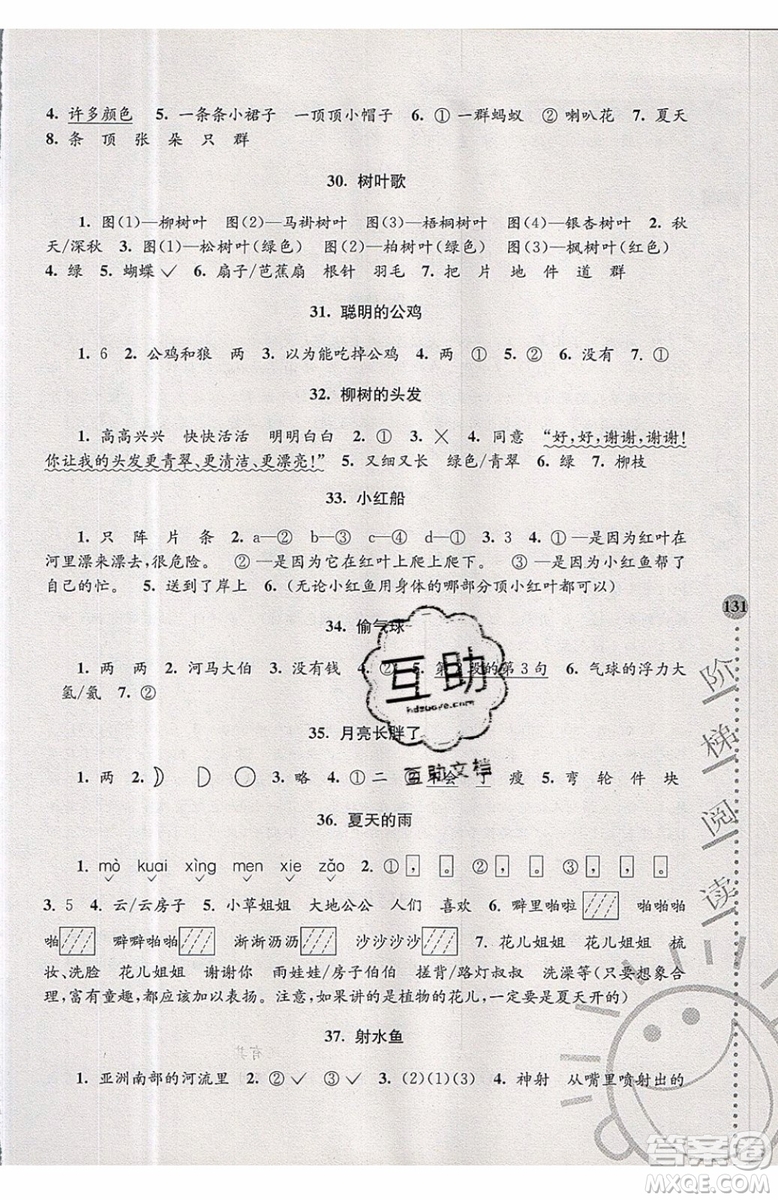 4. 许多颜色 5. 一条条小裙子 一顶顶小帽子 6. ① 一群蚂蚁 ② 喇叭花 7. 夏天
8. 条 顶 张 朵 只 群
30. 树叶歌
1. 图(1)—柳树叶 图(2)—马褂树叶 图(3)—梧桐树叶 图(4)—银杏树叶 2. 秋
天/深秋 3. 图(1)—松树叶(绿色) 图(2)—柏树叶(绿色) 图(3)—枫树叶(红色)
4. 绿 5. 蝴蝶✓ 6. 扇子/芭蕉扇 根针 羽毛 7. 把 片 地 件 道 群
31. 聪明的公鸡
1. 6 2. 公鸡和狼 两 3. 以为能吃掉公鸡 4. 两 ① 5. ② 6. 没有 7. ①
32. 柳树的头发
1. 高高兴兴 快快活活 明明白白 2. ① 3. ✕ 4. 同意 “好,好,谢谢,谢谢!
你让我的头发更青翠、更清洁、更漂亮!” 5. 又细又长 绿色/青翠 6. 绿 7. 柳枝
33. 小红船
1. 只 阵 片 条 2. a—② b—① c—④ d—③ 3. 3 4. ①—是因为红叶在
河里漂来漂去,很危险。 ②—是因为它在红叶上爬上爬下。 ③—是因为小红鱼帮了
自己的忙。 5. 送到了岸上 6. (无论小红鱼用身体的哪部分顶小红叶都可以)
34. 偷气球
1. 两 两 2. 河马大伯 3. 没有钱 4. ② 5. 第 的第 3 句 6. 气球的浮力大
氢/氦 7. ②
35. 月亮长胖了
1. 两 2. 3. 略 4. ①二 瘦 5. 弯 轮 件 块
36. 夏天的雨
1. mò kuai xìng men xie zǎo 2. ① , 。 ② , 。 ③ , 。
3. 5 4. 云/云房子 5. 小草姐姐 大地公公 人们 喜欢 6. 噼里啪啦 啪啪啪
啪 噼噼啪啪 淅淅沥沥 沙沙沙沙 7. 花儿姐姐 花儿姐姐 梳
妆、洗脸 花儿姐姐 谢谢你 雨娃娃/房子伯伯 搓背/路灯叔叔 洗澡等(只要想象合
理,富有童趣,都应该加以表扬。注意,如果讲的是植物的花儿,一定要是夏天开的)
37. 射水鱼
1. 亚洲南部的河流里 2. ②✓ ③✓ 3. (2)(1)(3) 4. 神射 从嘴里喷射出的
131
阶
梯
阅
读
互助
hdzuoye.com
互助文档
答案圈
MXQE.COM